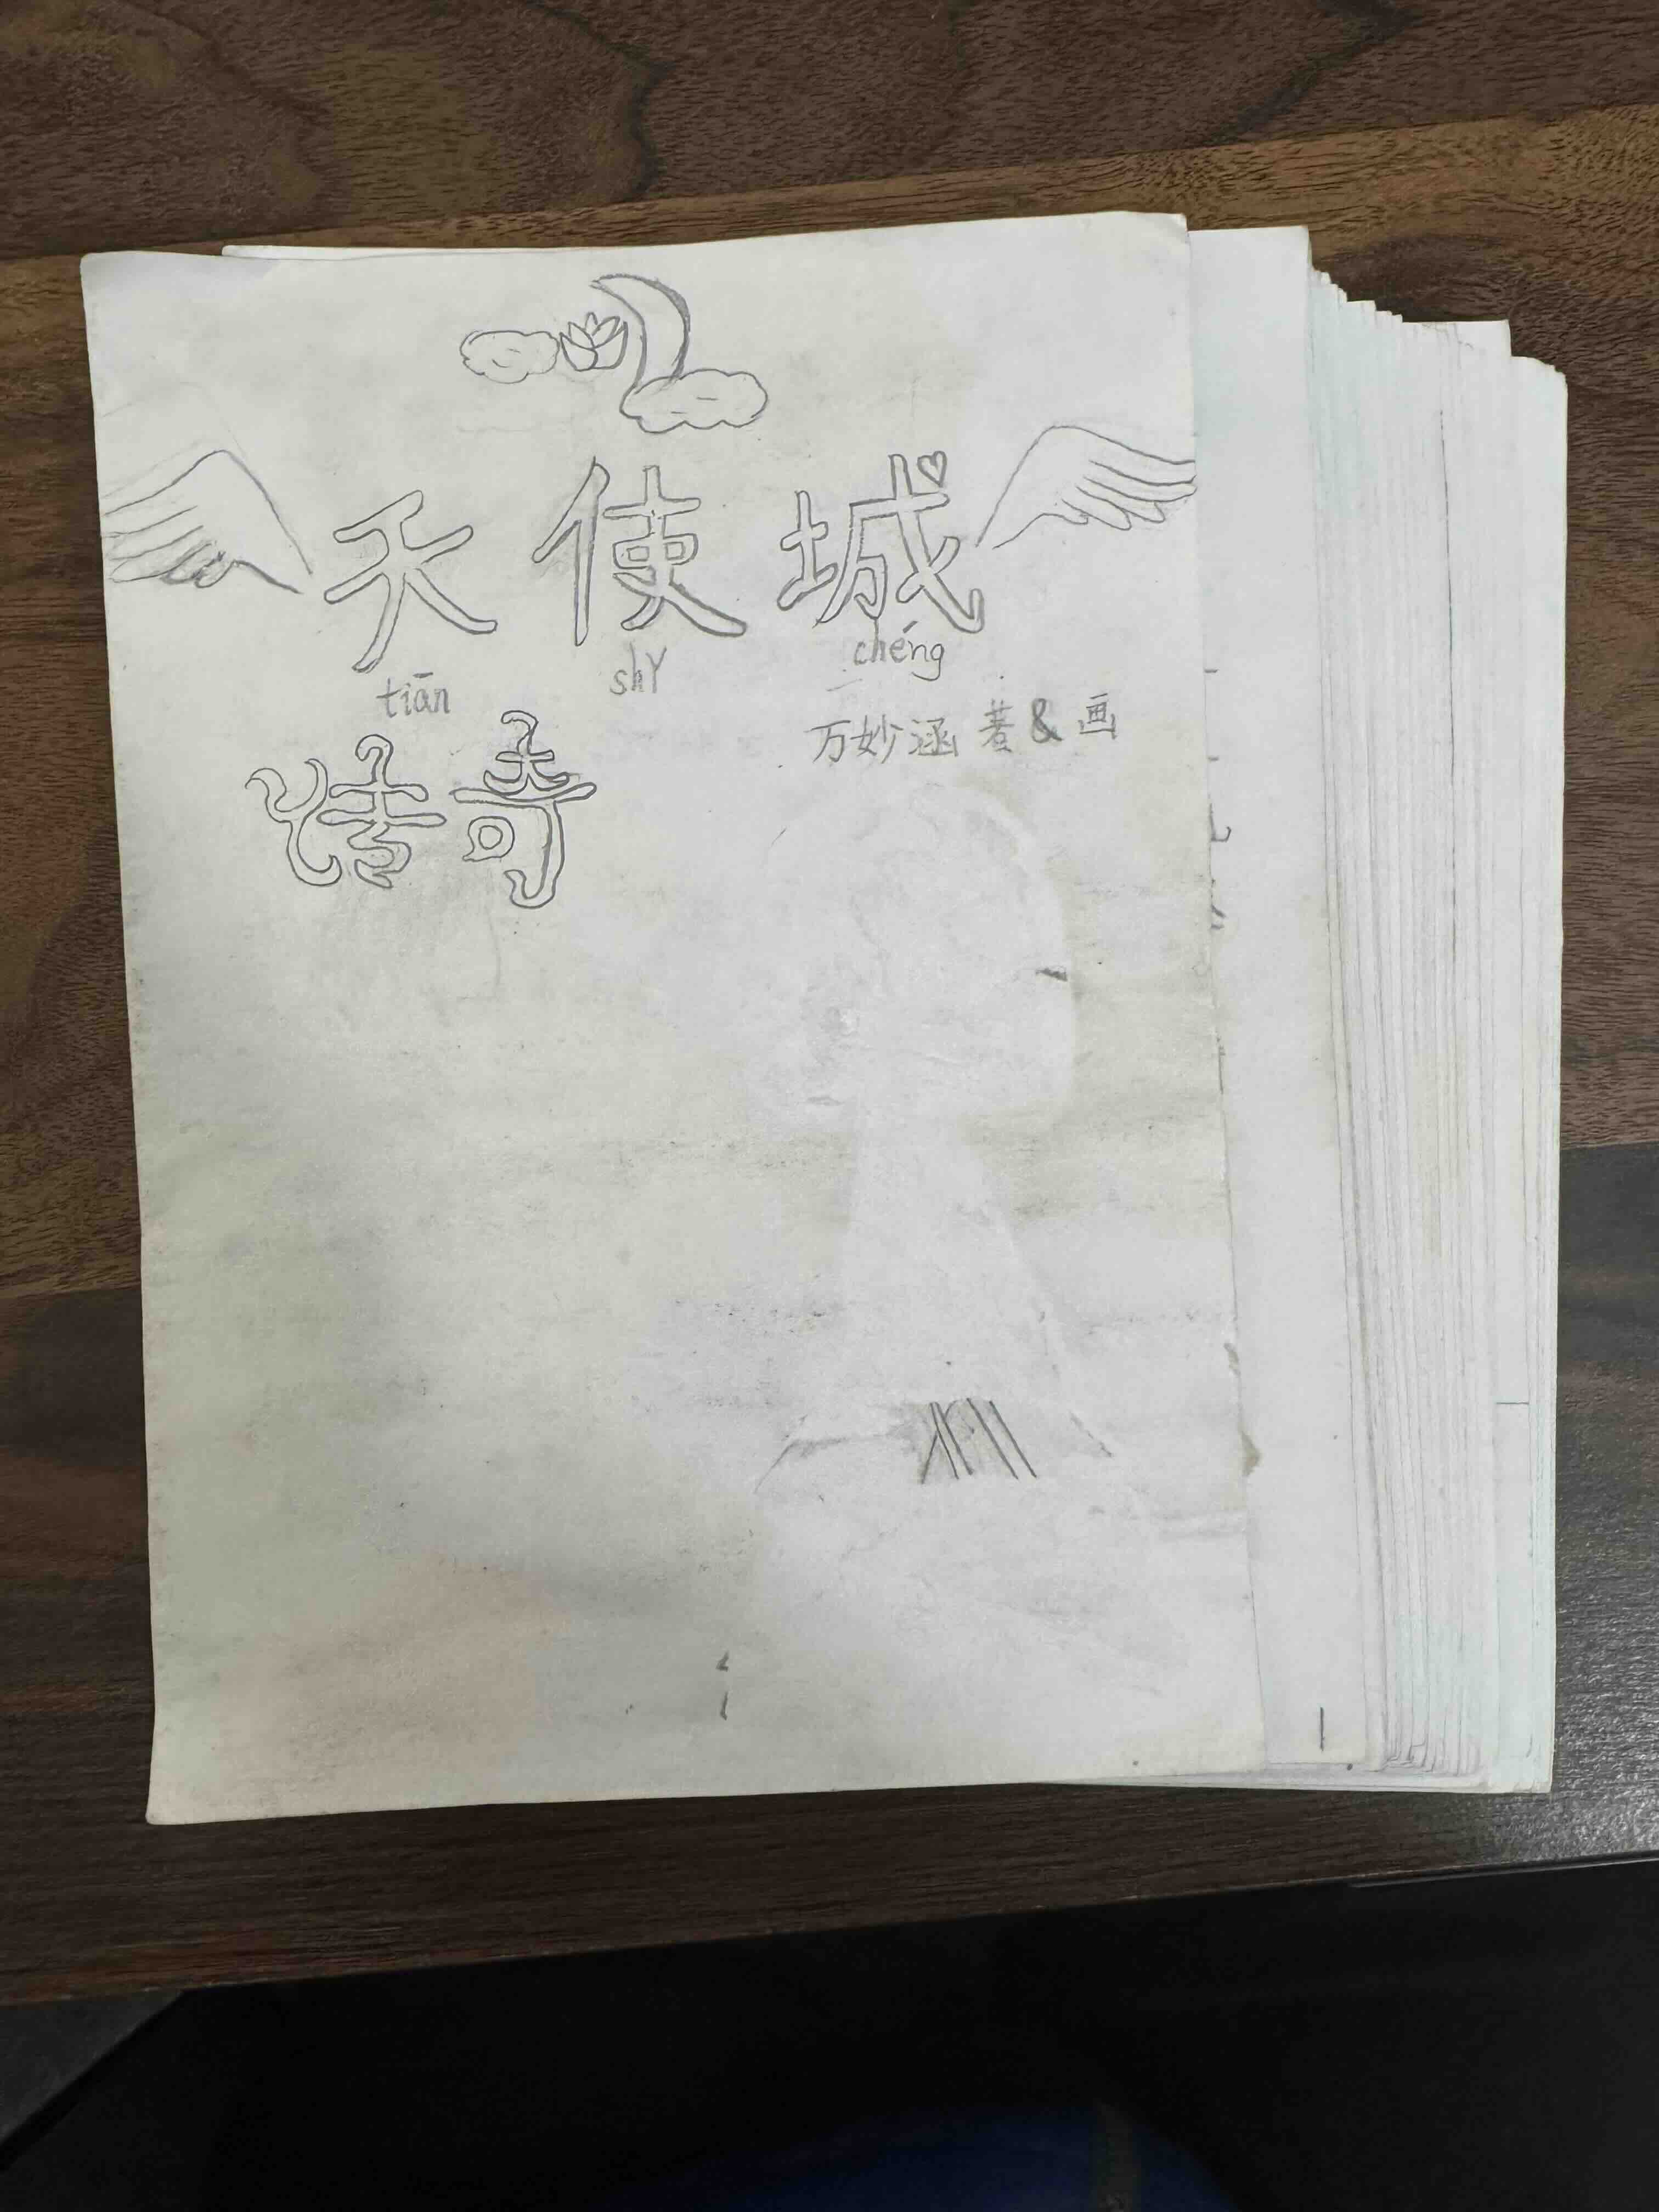 天使城
tiān shǐ chéng
万妙涵 著&画
传奇